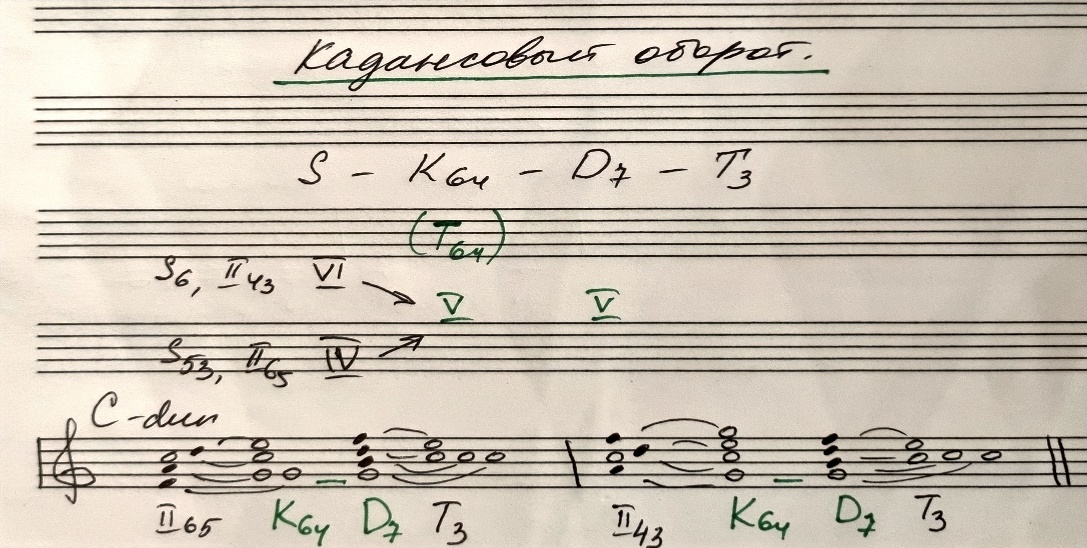 Кадансовый оборот.
S – K64 – D7 – T3
(T64)
S6, II43 VI
V V
S53, II65 IV
C-dur
II65 K64 D7 T3 II43 K64 D7 T3